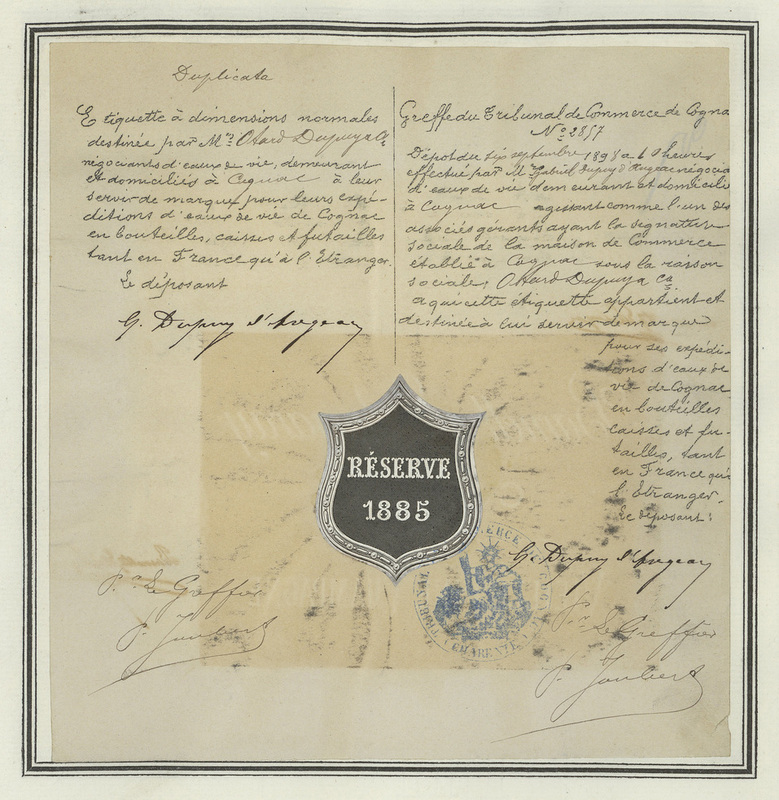 Duplicata
Etiquette à dimensions normales
destinée par Mrs Otard Dupuy & Cie
négociants d'eaux de vie, demeurant
et domiciliés à Cognac à leur
servir de marque pour leurs expé-
ditions d'eaux de vie de Cognac
en bouteilles, caisses et futailles
tant en France qu'à l'Etranger
Le déposant
G. Dupuy d'Angeac
Greffe du Tribunal de Commerce de Cogna
No 2857
Dépôt du six septembre 1898 à heures
effectué par Mr Gabriel Dupuy d'Angeac négocia
d'eaux de vie demeurant et domicilié
à Cognac agissant comme l'un des
associés gérants ayant la signature
sociale de la maison de Commerce
établie à Cognac sous la raison
sociale, Otard Dupuy & Cie
à qui cette étiquette appartient et
destinée à lui servir de marque
pour ses expédi-
tions d'eaux de
vie de Cognac
en bouteilles
caisses et fu-
tailles, tant
en France qu'à
l'Etranger.
Le déposant :
G. Dupuy d'Angeac
RÉSERVE
1885
Pr Le Greffier
P. Joubert
TRIBUNAL COMMERCE DE COGNAC
CHARENTE
Pr Le Greffier
P. Joubert